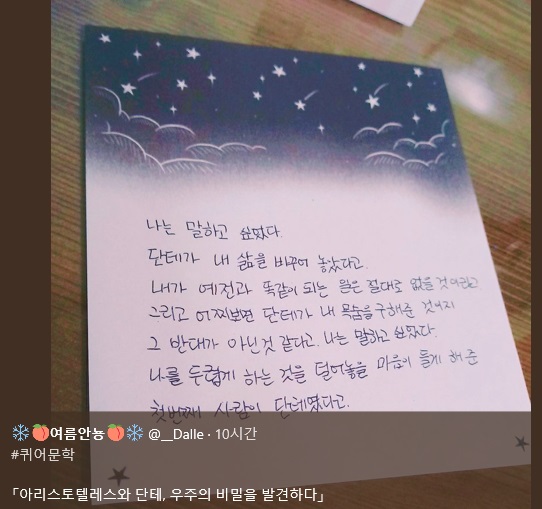 나는 말하고 싶었다.
단테가 내 삶을 바꾸어 놓았다고.
내가 예전과 똑같이 되는 일은 절대로 없을 것이라고
그리고 어찌보면 단테가 내 목숨을 구해준 것이지
그 반대가 아닌것 같다고. 나는 말하고 싶었다.
나를 두렵게 하는 것을 털어놓을 마음이 들게 해 준
첫번째 사람이 단테였다고.
❄️🍑여름안뇽🍑❄️ @__Dalle · 10시간
#퀴어문학
「아리스토텔레스와 단테, 우주의 비밀을 발견하다」